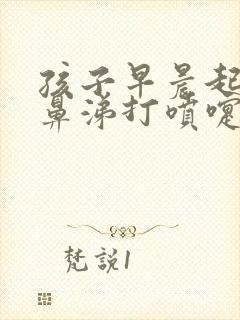 孩子早晨起
鼻涕打噴嚏
梵説1